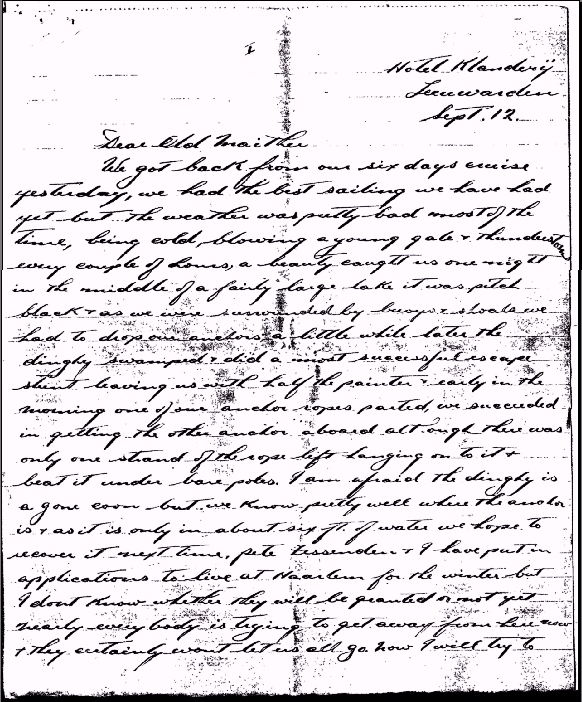 I
Hotel Klanderij
Leeuwarden
Sept. 12.
Dear Old Maither
We got back from our six days cruise
yesterday, we had the best sailing we have had
yet but the weather was pretty bad most of the
time, being cold, blowing a young gale + thunderstorm
every couple of hours, a beauty caught us one night
in the middle of a fairly large lake it was pitch
black + as we were surrounded by buoys + shoals we
had to drop our anchors a little while later the
dinghy swamped + did a most successful escape
stunt leaving us with half the painter + early in the
morning one of our anchor ropes parted, we succeeded
in getting the other anchor aboard alt ough there was
only one strand of the rope left hanging on to it +
beat it under bare poles. I am afraid the dinghy is
a gone coon but we know pretty well where the anchor
is + as it is only in about six ft. of water we hope to
recover it next time, Pete Fessenden + I have put in
applications to live at Haarlem for the winter but
I dont know whether they will be granted or not yet
nearly every body is trying to get away from here now
+ they certainly wont let us all go now I will try to